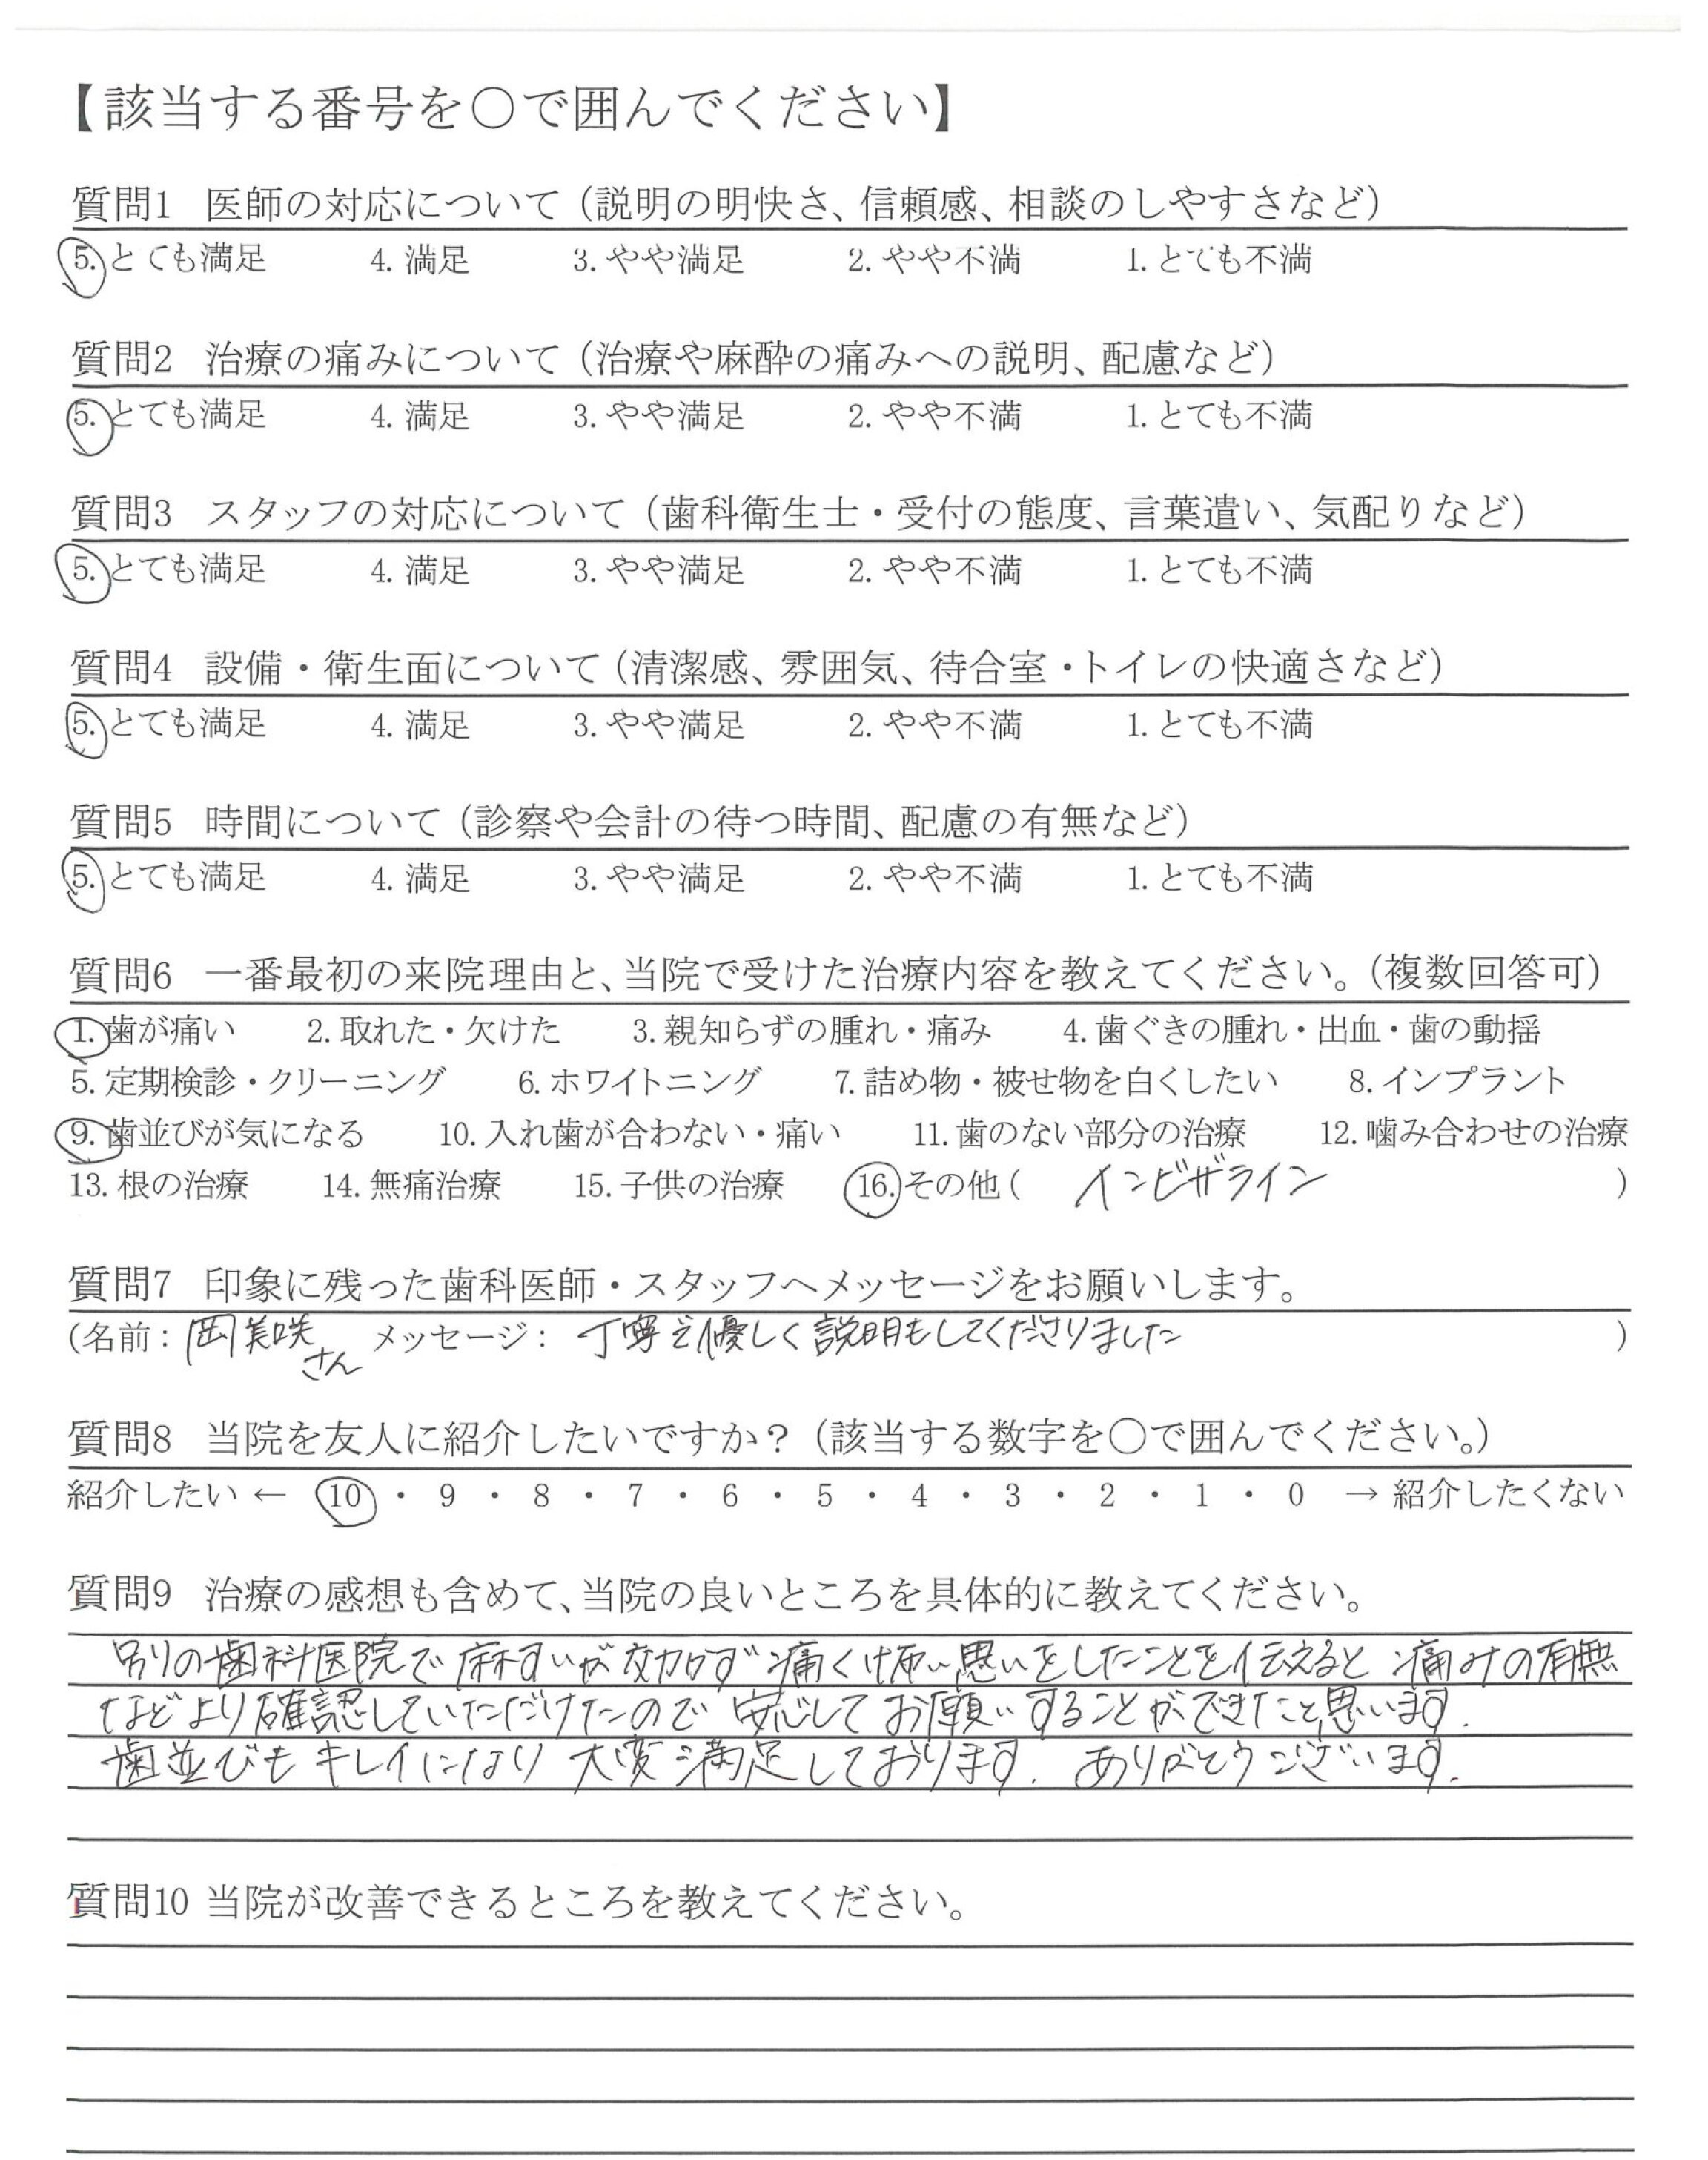 【該当する番号を〇で囲んでください】
質問1 医師の対応について（説明の明快さ、信頼感、相談のしやすさなど）
5. とても満足 4. 満足 3. やや満足 2. やや不満 1. とても不満
質問2 治療の痛みについて（治療や麻酔の痛みへの説明、配慮など）
5. とても満足 4. 満足 3. やや満足 2. やや不満 1. とても不満
質問3 スタッフの対応について（歯科衛生士・受付の態度、言葉遣い、気配りなど）
5. とても満足 4. 満足 3. やや満足 2. やや不満 1. とても不満
質問4 設備・衛生面について（清潔感、雰囲気、待合室・トイレの快適さなど）
5. とても満足 4. 満足 3. やや満足 2. やや不満 1. とても不満
質問5 時間について（診察や会計の待つ時間、配慮の有無など）
5. とても満足 4. 満足 3. やや満足 2. やや不満 1. とても不満
質問6 一番最初の来院理由と、当院で受けた治療内容を教えてください。（複数回答可）
1. 歯が痛い 2. 取れた・欠けた 3. 親知らずの腫れ・痛み 4. 歯ぐきの腫れ・出血・歯の動揺
5. 定期検診・クリーニング 6. ホワイトニング 7. 詰め物・被せ物を白くしたい 8. インプラント
9. 歯並びが気になる 10. 入れ歯が合わない・痛い 11. 歯のない部分の治療 12. 噛み合わせの治療
13. 根の治療 14. 無痛治療 15. 子供の治療 16. その他（ インビザライン ）
質問7 印象に残った歯科医師・スタッフへメッセージをお願いします。
（名前： 岡美咲さん メッセージ： 丁寧で優しく説明もしてくださりました ）
質問8 当院を友人に紹介したいですか？（該当する数字を〇で囲んでください。）
紹介したい ← 10 ・ 9 ・ 8 ・ 7 ・ 6 ・ 5 ・ 4 ・ 3 ・ 2 ・ 1 ・ 0 → 紹介したくない
質問9 治療の感想も含めて、当院の良いところを具体的に教えてください。
別りの歯科医院で麻すいが効かず痛くけ怖い思いをしたことを伝えると痛みの有無
などより確認していただけたので安心してお願いすることができたと思います.
歯並びもキレイになり大変満足しております. ありがとうございます.
質問10 当院が改善できるところを教えてください。